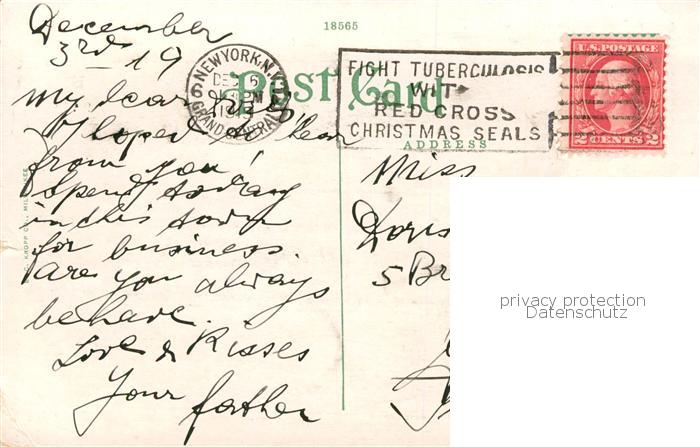 December
3rd 19
18565
NEW YORK, N.Y.
DEC 5
GRAND CENTRAL
Post Card
FIGHT TUBERCULOSIS
WITH
RED CROSS
CHRISTMAS SEALS
U.S. POSTAGE
2 CENTS 2
ADDRESS
My dear
I hoped to hear
from you
spend to day
in this town
for business.
are you always
behave.
Love & Kisses
Your father
Miss
Doris
5 Br
privacy protection
Datenschutz